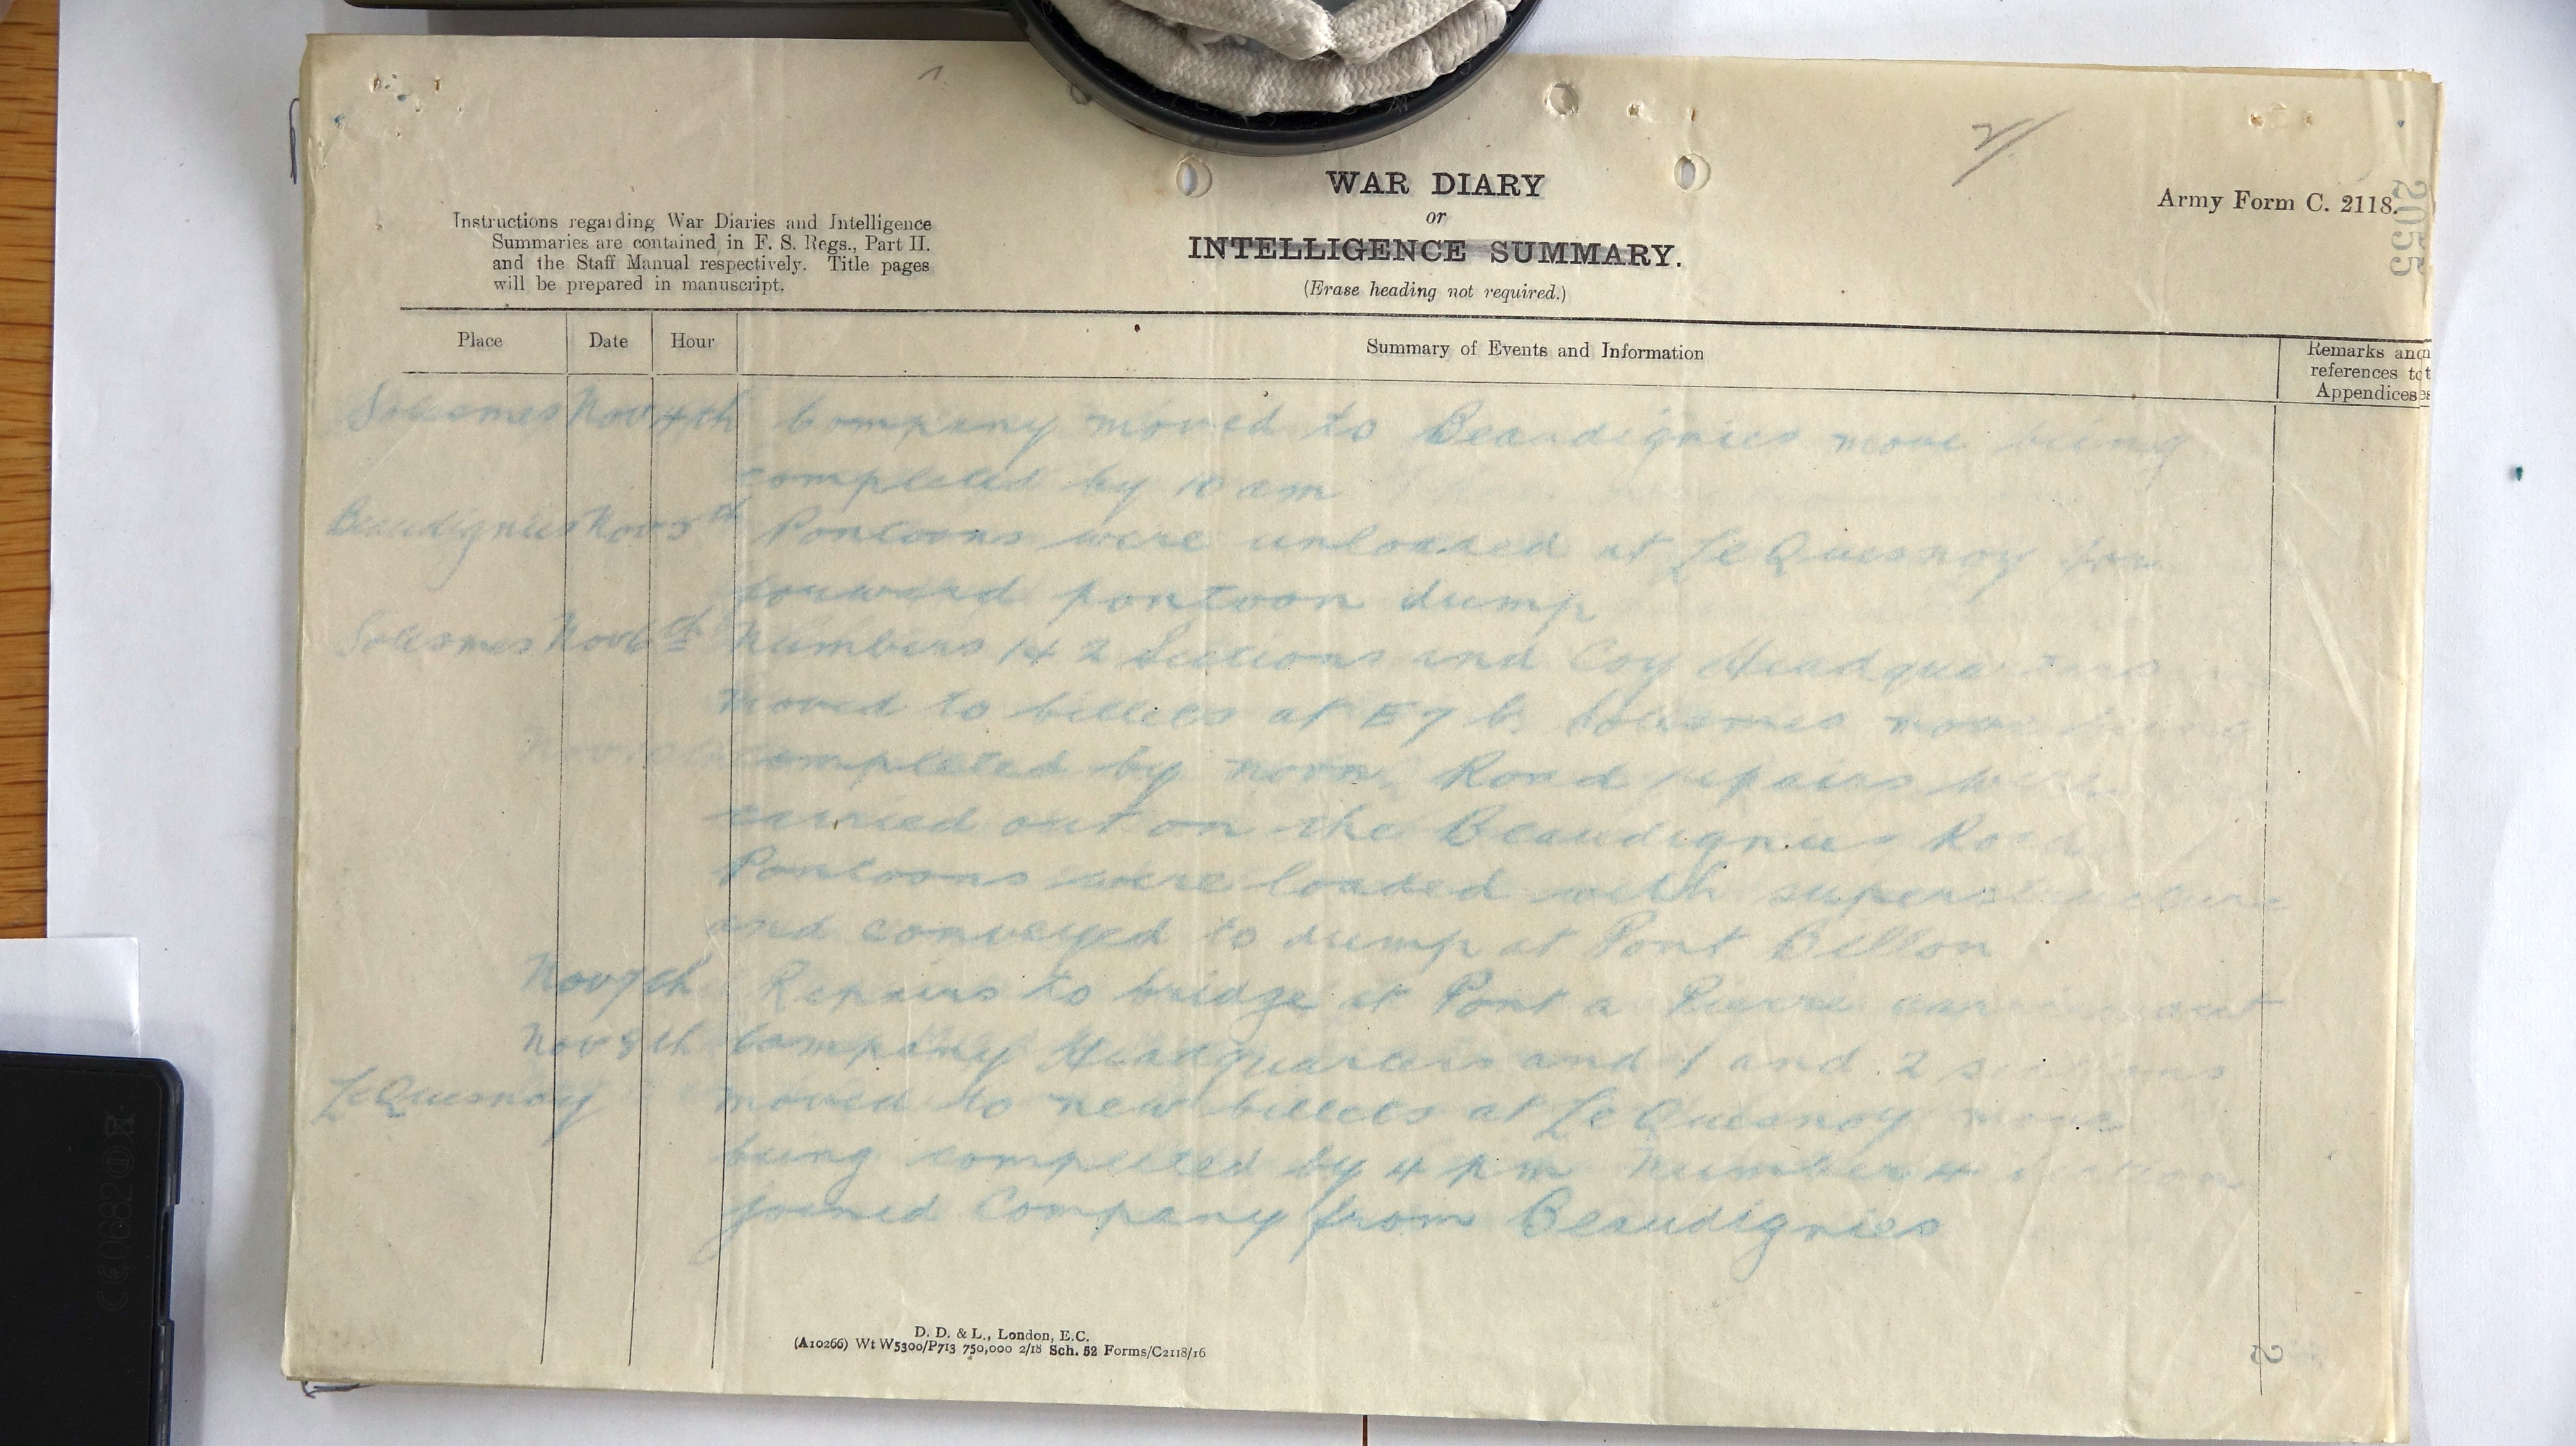 2/
WAR DIARY
or
INTELLIGENCE SUMMARY.
(Erase heading not required.)
Army Form C. 2118.
2055
Instructions regarding War Diaries and Intelligence
Summaries are contained in F. S. Regs., Part II.
and the Staff Manual respectively. Title pages
will be prepared in manuscript.
Place Date Hour Summary of Events and Information Remarks and references to Appendices
Solesmes Nov 4th Company moved to Beaudignies move being
completed by 10 am
Beaudignies Nov 5th Pontoons were unloaded at Le Quesnoy for
forward pontoon dump
Solesmes Nov 6th Numbers 1 & 2 Sections and Coy Headquarters
moved to billets at E 7 b. Solesmes move being
completed by noon. Road repairs were
carried out on the Beaudignies Road
Pontoons were loaded with superstructure
and conveyed to dump at Pont Billon
Nov 7th Repairs to bridge at Pont a Pierre carried out
Nov 8th Company Headquarters and 1 and 2 sections
Le Quesnoy moved to new billets at Le Quesnoy move
being completed by 4 pm Number 4 section
joined Company from Beaudignies
D. D. & L., London, E.C.
(A10266) Wt W5300/P713 750,000 2/18 Sch. 52 Forms/C2118/16